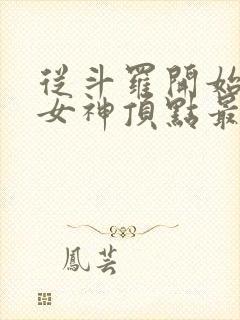 從斗羅開始
女神頂點最
鳳芸